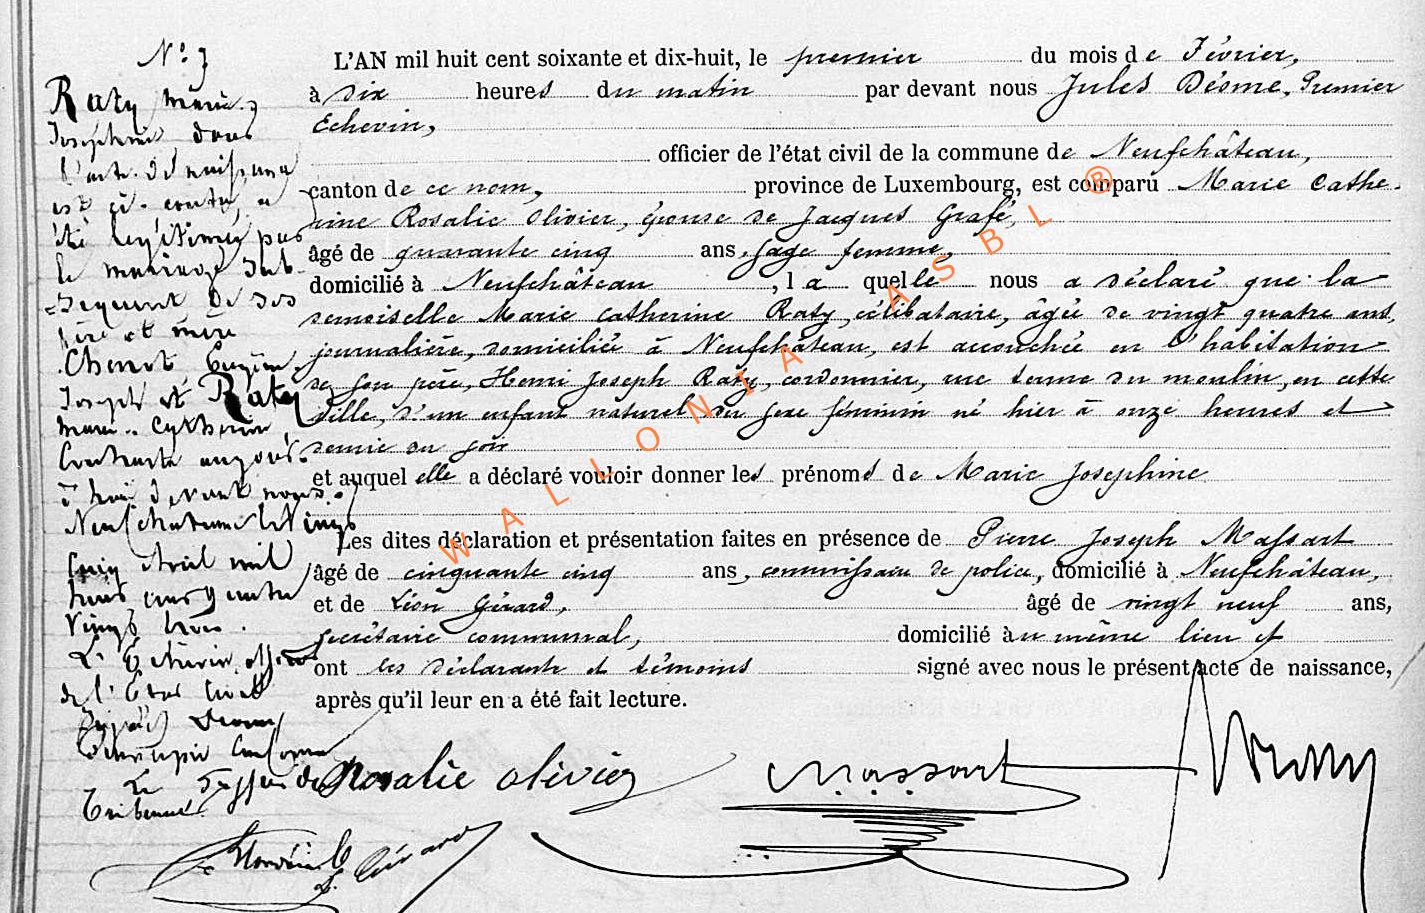 N° 7
Raty Marie
Josephine dans
l'acte de naissance
est ci-contre, a
été légitimée par
le mariage sub-
séquent de ses
père et mère
Chenot Eugène
Joseph et Raty
Marie Catherine
Contracté aujour-
d'hui devant nous.
Neufchâteau le vingt
cinq Avril mil
huit cent quatre
vingt trois.
L'Echevin officier
de l'Etat Civil
(signé) Désme
Pour copie conforme
Le Greffier du
Tribunal
L'AN mil huit cent soixante et dix-huit, le premier du mois de Février,
à six heures du matin par devant nous Jules Désme, Premier
Echevin,
officier de l'état civil de la commune de Neufchâteau,
canton de ce nom, province de Luxembourg, est comparu Marie Cathe-
rine Rosalie Olivier, épouse de Jacques Grafé,
âgé de quarante cinq ans, sage femme,
domicilié à Neufchâteau, la quelle nous a déclaré que la
demoiselle Marie Catherine Raty, célibataire, âgée de vingt quatre ans,
journalière, domiciliée à Neufchâteau, est accouchée en l'habitation
de son père, Henri Joseph Raty, cordonnier, rue terme du moulin, en cette
ville, d'un enfant naturel du sexe féminin né hier à onze heures et
demie du soir
et auquel elle a déclaré vouloir donner les prénoms de Marie Josephine
Les dites déclaration et présentation faites en présence de Pierre Joseph Massart
âgé de cinquante cinq ans, commissaire de police, domicilié à Neufchâteau,
et de Léon Gérard, âgé de vingt neuf ans,
secrétaire communal, domicilié au même lieu et
ont les déclarante et témoins signé avec nous le présent acte de naissance,
après qu'il leur en a été fait lecture.
Rosalie Olivier Massart
L. Gérard
WALLONIA ASBL ®